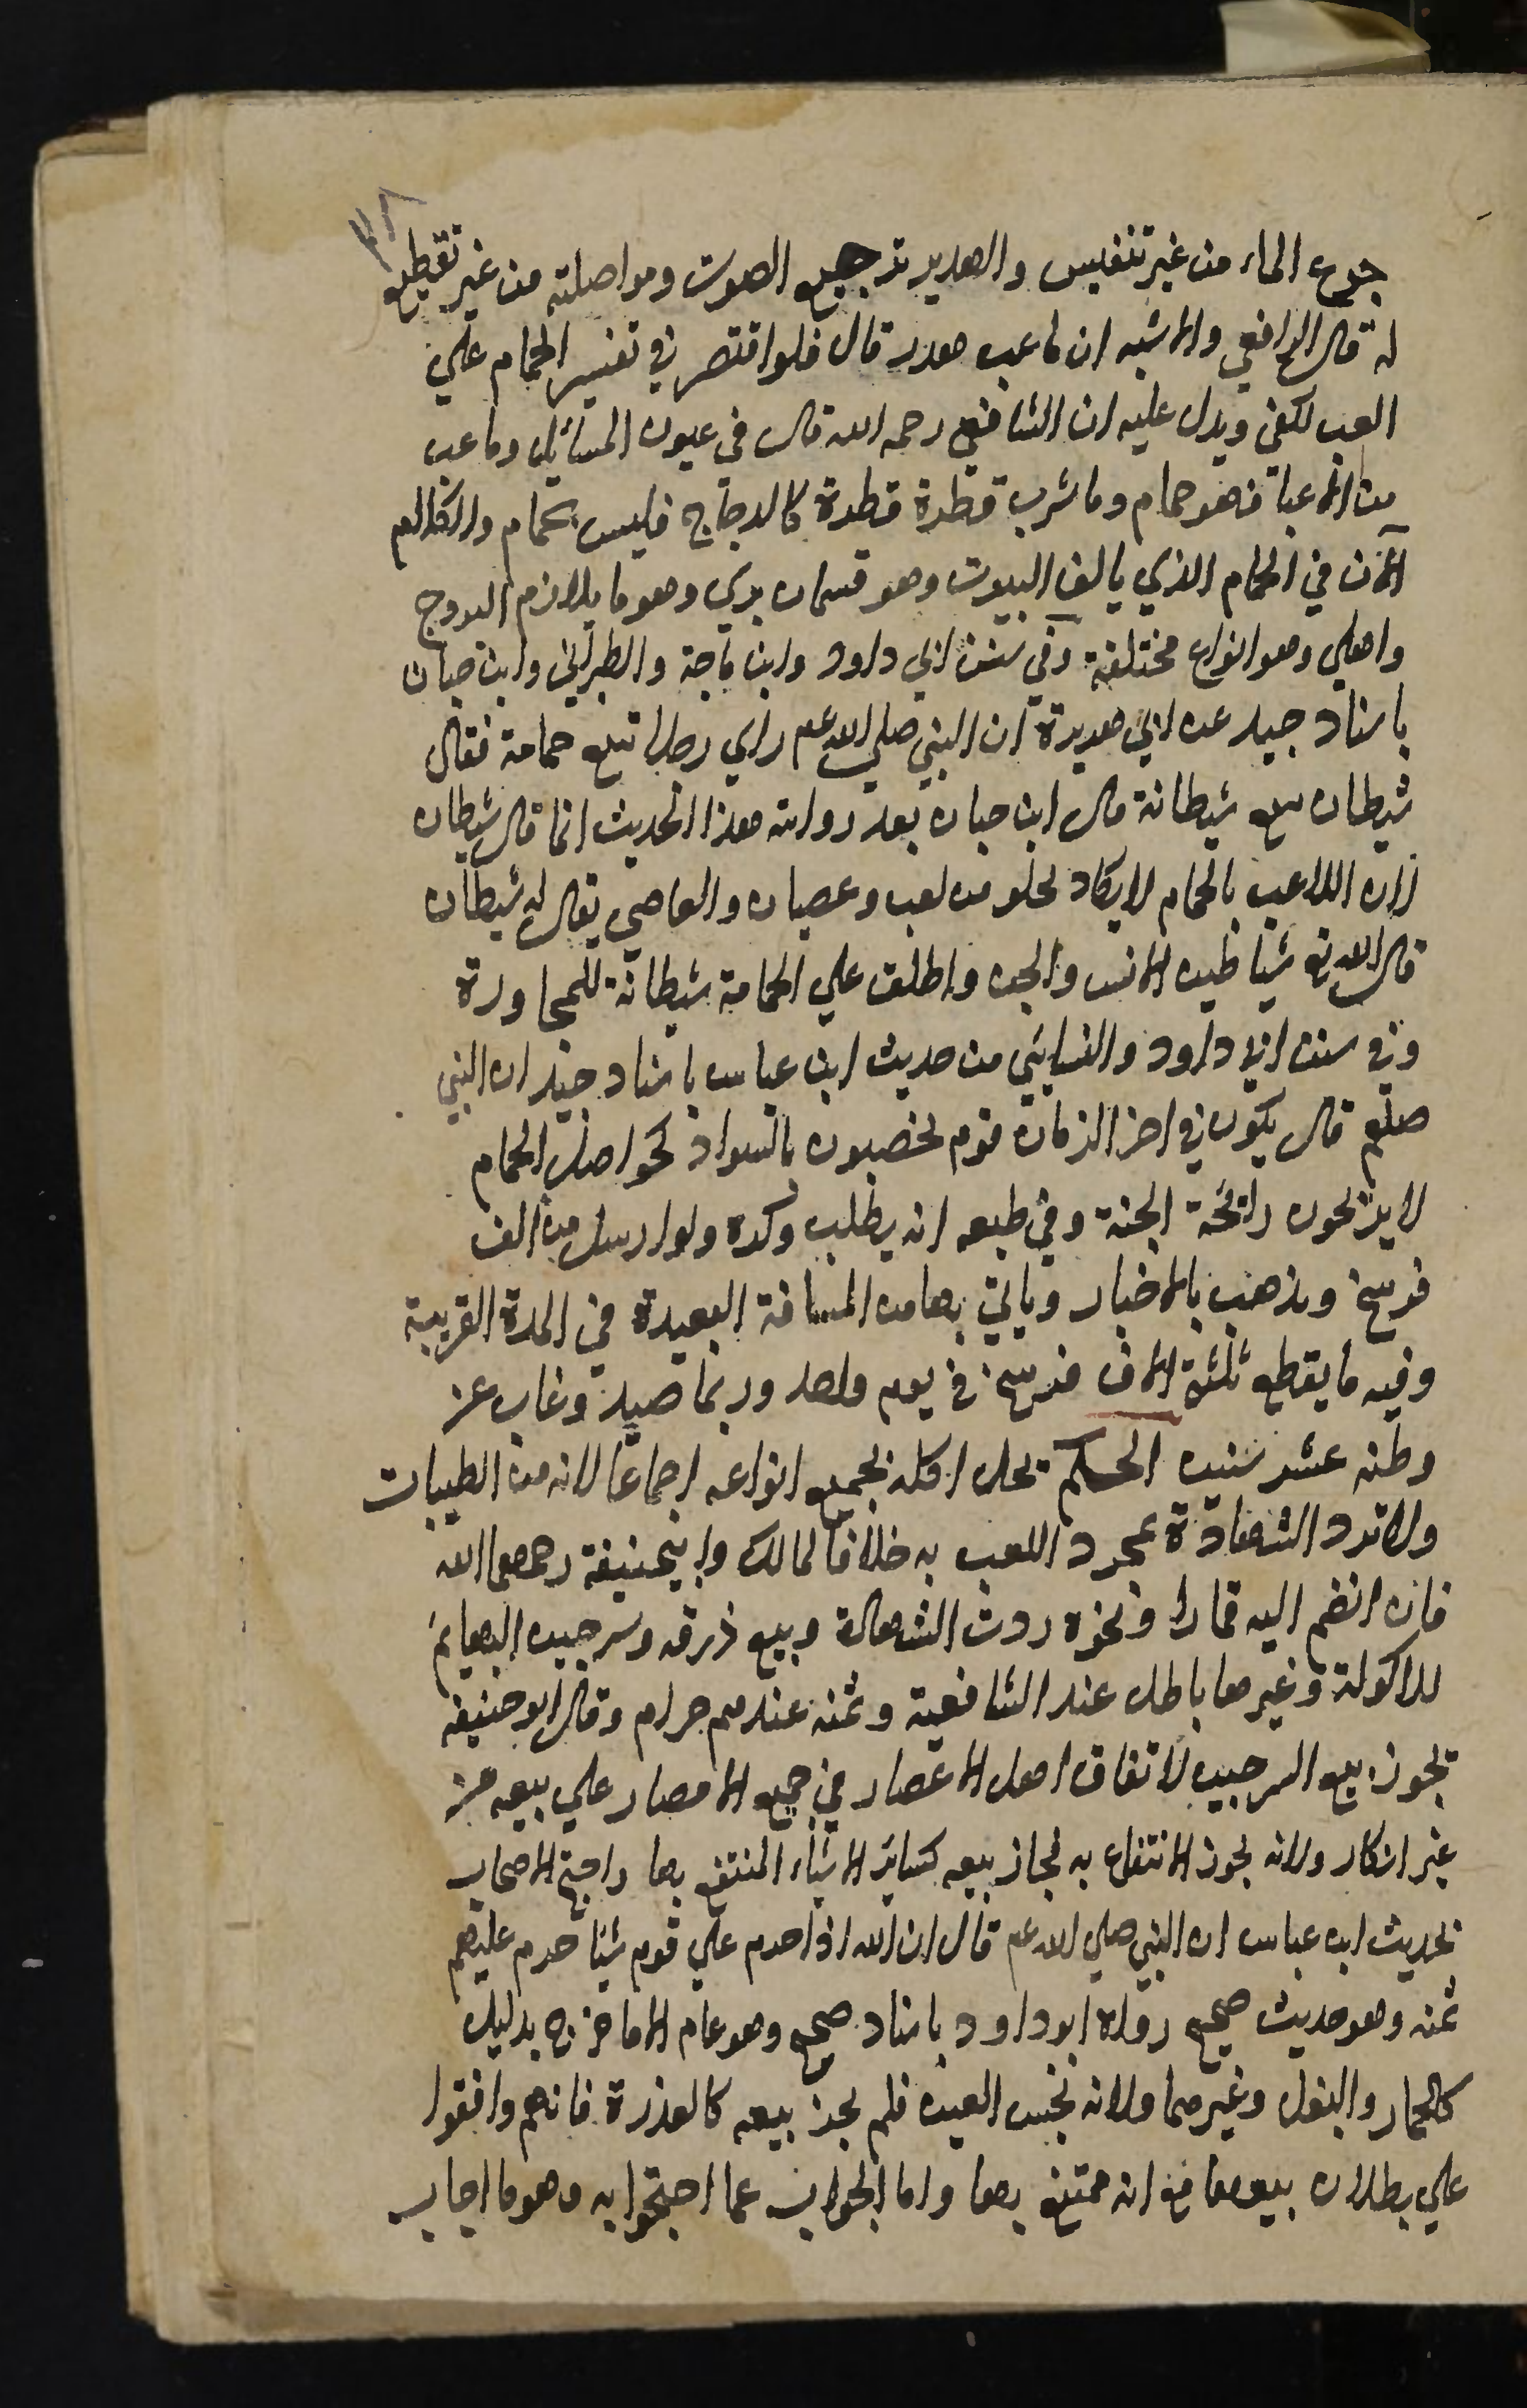 ٣٨
جرع الماء من غير تنفيس والهدير ترجيع الصوت ومواصلته من غير تقطيع
له قال الرافعي والاشبه ان ما عب هدر قال فلو اقتصر في تفسير الحمام علي
العب لكفي ويدل عليه ان الشافعي رحمه الله قال في عيون المسائل وما عب
من الماء عبا فهو حمام وما شرب قطرة قطرة كالدجاج فليس بحمام والكلام
الآن في الحمام الذي يالف البيوت وهو قسمان بري وهو ما يلازم البروج
واهلي وهو انواع مختلفة وفي سنن ابي داود وابن ماجة والطبراني وابن حبان
باسناد جيد عن ابي هريرة ان النبي صلي الله عم راي رجلا تبع حمامة فقال
شيطان يتبع شيطانة قال ابن حبان بعد روايته هذا الحديث انما قال شيطان
لان اللاعب بالحمام لا يكاد يخلو من لعب وعصيان والعاصي يقال له شيطان
قال الله تع شياطين الانس والجن واطلق علي الحمامة شيطانة للمجاورة
وفي سنن ابي داود والنسائي من حديث ابن عباس باسناد جيد ان النبي
صلعم قال يكون في اخر الزمان قوم يخضبون بالسواد كحواصل الحمام
لا يريحون رائحة الجنة وفي طبعه انه يطلب وكره ولو ارسل من الف
فرسخ ويذهب بالاخبار وياتي بها من المسافة البعيدة في المدة القريبة
وفيه ما يقطع ثلثة الاف فرسخ في يوم واحد وربما صيد وغاب عن
وطنه عشر سنين الحكم يحل اكله بجميع انواعه اجماعا لانه من الطيبات
ولا ترد الشهادة بمجرد اللعب به خلافا لمالك وابيحنيفة رحمهما الله
فان انضم اليه قمار او نحوه ردت الشهادة وبيع ذرقه وسرجين البهايم
الماكولة وغيرها باطل عند الشافعية وثمنه عندهم حرام وقال ابو حنيفه
يجوز بيع السرجين لاتفاق اهل الاعصار في جميع الامصار علي بيعه من
غير انكار ولانه يجوز الانتفاع به فجاز بيعه كسائر الاشياء المنتفع بها واحتج الاصحاب
بحديث ابن عباس ان النبي صلي الله عم قال ان الله اذا حرم علي قوم شيئا حرم عليهم
ثمنه وهو حديث صحيح رواه ابو داود باسناد صحيح وهو عام الا ما خرج بدليل
كالحمار والبغل وغيرهما ولانه نجس العين فلم يجز بيعه كالعذرة فانهم وافقوا
علي بطلان بيعها مع انه منتفع بها واما الجواب عما احتجوا به وهو ما اجاب